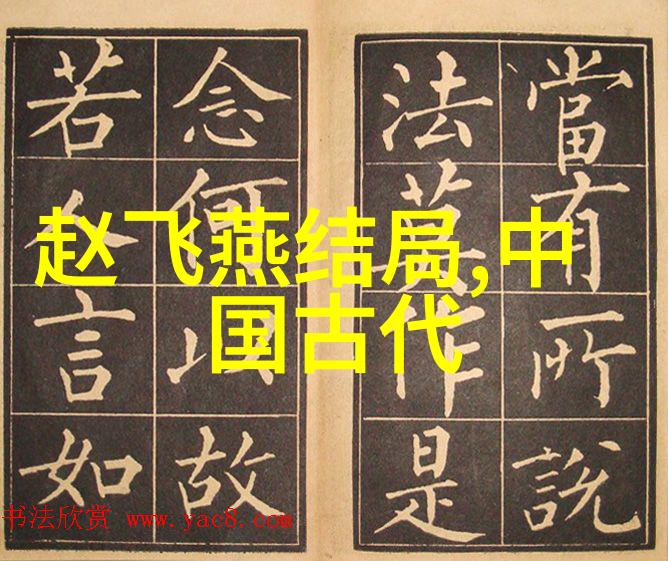 赵飞燕结局,中
国古代
當有所說
法莫作是
念何以故
若人言如
书法欣赏 www.yac8.com